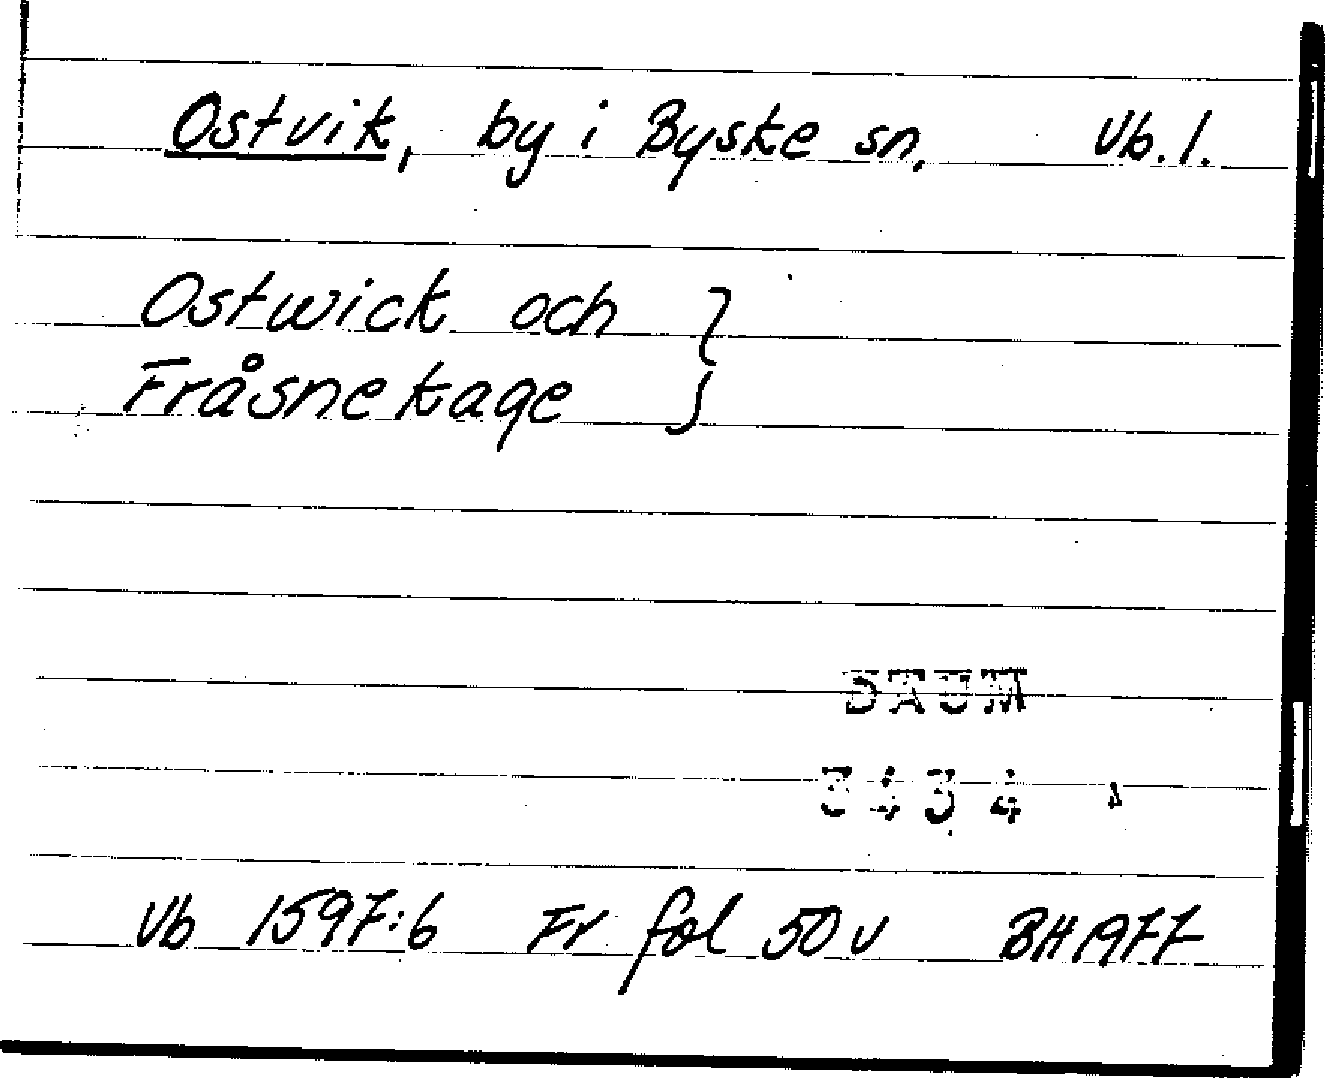 Ostvik, by i Byske sn. Vb. l.
Ostwick och }
Fråsnekage
DAUM
3434
Vb 1597:6 Fr fol 50 v BH 1977